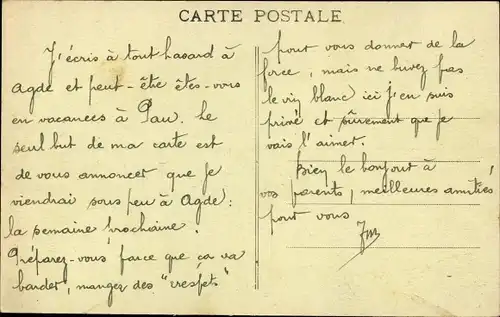 CARTE POSTALE
J'écris à tout hasard à
Agde et peut-être êtes-vous
en vacances à Pau. Le
seul but de ma carte est
de vous annoncer que je
viendrai sous peu à Agde:
la semaine prochaine.
Préparez-vous parce que ça va
barder, mangez des
pour vous donner de la
force, mais ne buvez pas
le vin blanc, ici j'en suis
privé et sûrement que je
vais l'aimer.
Bien le bonjour à
vos parents, meilleures amitiés
pour vous